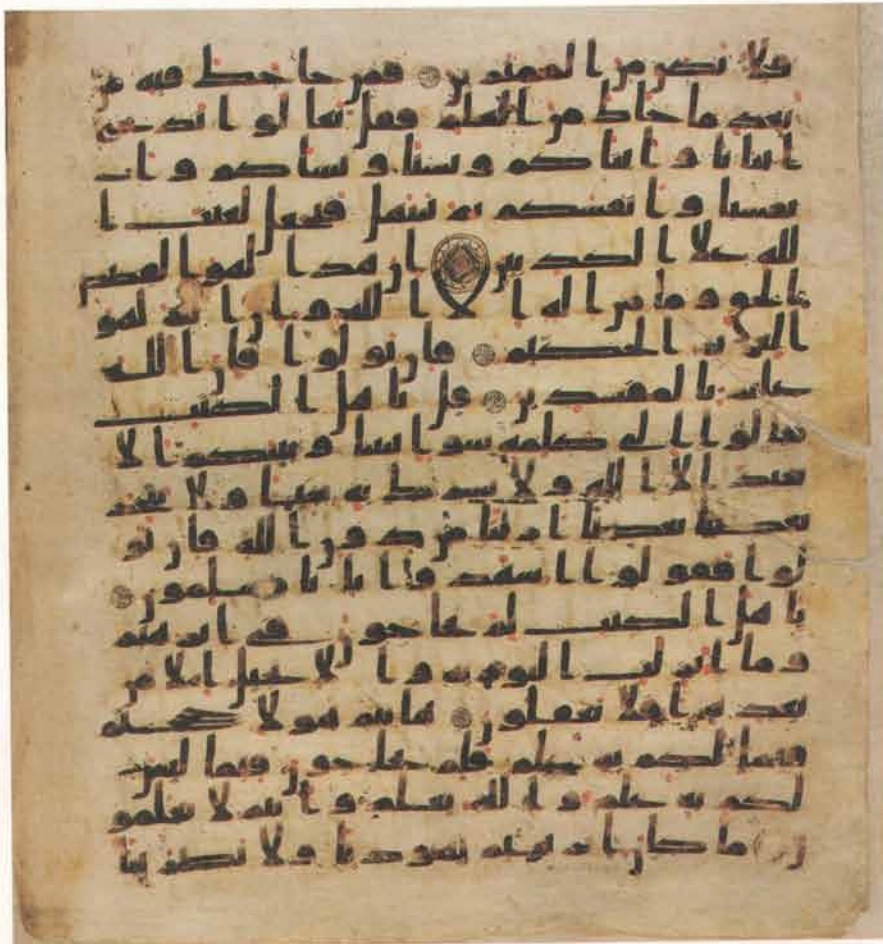 فلا تكن من الممترين فمن حاجك فيه من
بعد ما جاك من العلم فقل تعالوا ندع
ابنانا وابناكم ونسانا ونساكم وان
فسنا وانفسكم ثم نبتهل فنجعل لعنت ا
لله علا الكذبين ان هذا لهو القصص
الحق وما من اله الا الله وان الله لهو
العزيز الحكيم فان تولوا فان الله
عليم بالمفسدين قل ياهل الكتب
تعالوا الى كلمه سوا بيننا وبينكم الا
نعبد الا الله ولا نشرك به شيا ولا يتخذ
بعضنا بعضا اربابا من دون الله فان تو
لوا فقولوا اشهدوا بانا مسلمون
ياهل الكتب لم تحاجون في ابرهيم
وما انزلت التوريه والانجيل الا من
بعده افلا تعقلون هانتم هولا حججتم
فيما لكم به علم فلم تحاجون فيما ليس
لكم به علم والله يعلم وانتم لا تعلمو
ن ما كان ابرهيم يهوديا ولا نصرنيا